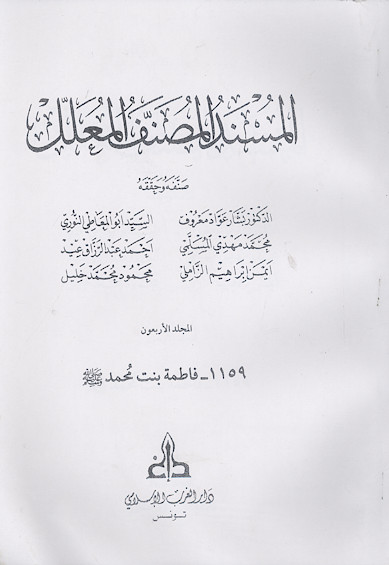 المسند المصنف المعلل
صنفه وحققه
الدكتور بشار عواد معروف السيد أبو المعاطي النوري
محمد مهدي المسلمي أحمد عبد الرزاق عيد
أيمن إبراهيم الزاملي محمود محمد خليل
المجلد الأربعون
١١٥٩ - فاطمة بنت محمد ﷺ
دار الغرب الإسلامي
تونس